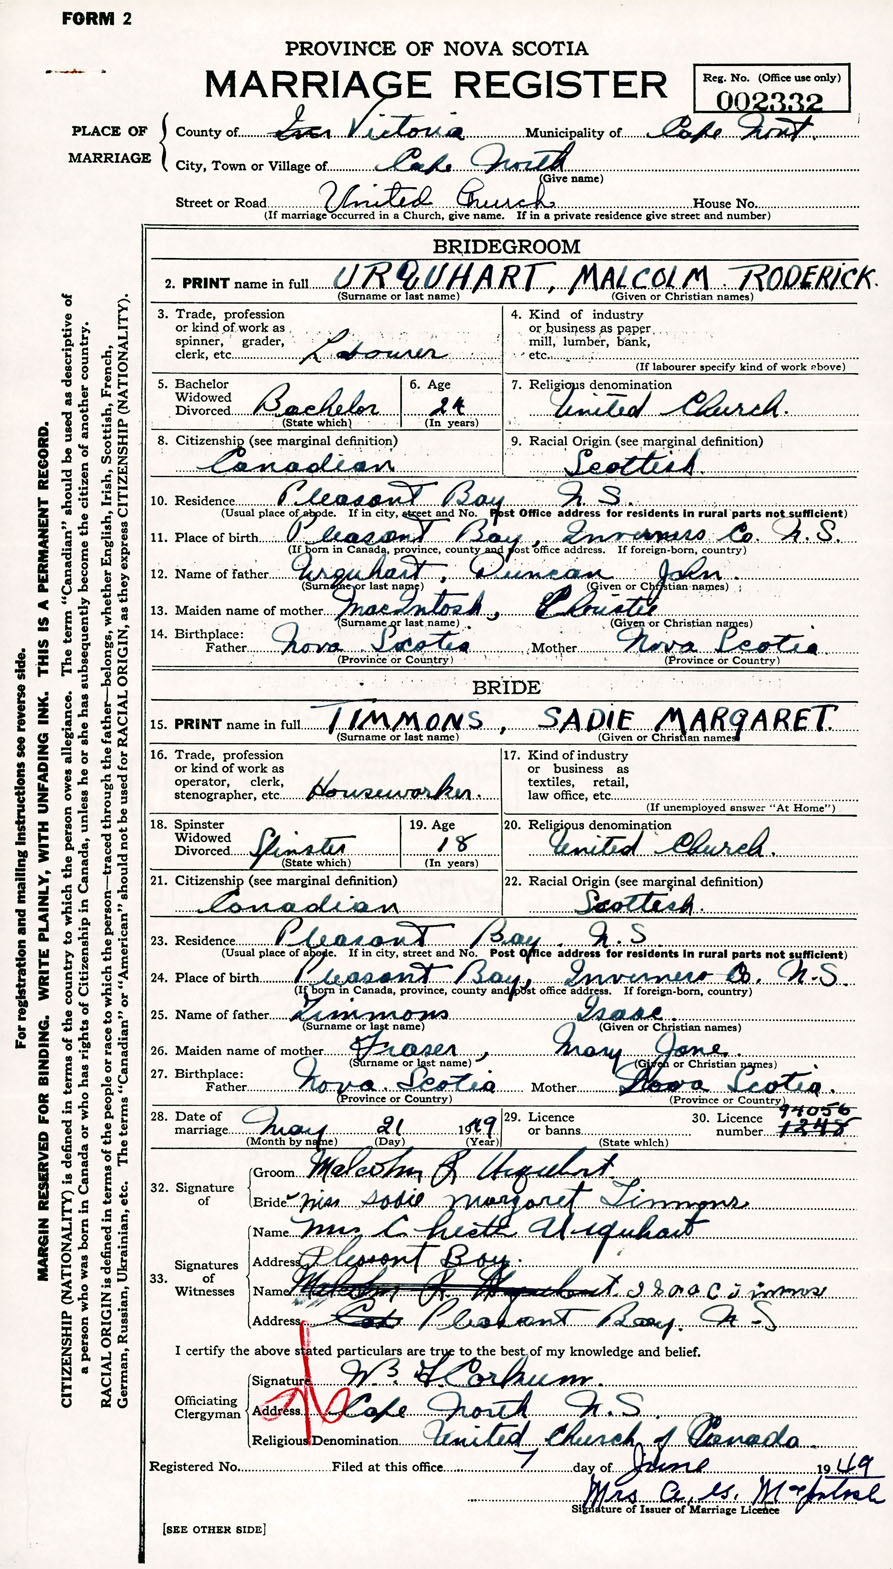 FORM 2
PROVINCE OF NOVA SCOTIA
MARRIAGE REGISTER
Reg. No. (Office use only)
002332
PLACE OF MARRIAGE
County of Victoria Municipality of Cape Nort.
City, Town or Village of Cape North
(Give name)
Street or Road United Church House No.
(If marriage occurred in a Church, give name. If in a private residence give street and number)
BRIDEGROOM
2. PRINT name in full URQUHART, MALCOLM RODERICK.
(Surname or last name) (Given or Christian names)
3. Trade, profession or kind of work as spinner, grader, clerk, etc. Labourer
4. Kind of industry or business as paper mill, lumber, bank, etc.
(If labourer specify kind of work above)
5. Bachelor Widowed Divorced Bachelor
(State which)
6. Age 24
(In years)
7. Religious denomination United Church.
8. Citizenship (see marginal definition) Canadian
9. Racial Origin (see marginal definition) Scottish.
10. Residence Pleasant Bay N.S.
(Usual place of abode. If in city, street and No. Post Office address for residents in rural parts not sufficient)
11. Place of birth Pleasant Bay, Inverness Co. N.S.
(If born in Canada, province, county and post office address. If foreign-born, country)
12. Name of father Urquhart, Duncan John.
(Surname or last name) (Given or Christian names)
13. Maiden name of mother MacIntosh,
(Surname or last name) (Given or Christian names)
14. Birthplace: Father Nova Scotia Mother Nova Scotia
(Province or Country) (Province or Country)
BRIDE
15. PRINT name in full TIMMONS, SADIE MARGARET.
(Surname or last name) (Given or Christian names)
16. Trade, profession or kind of work as operator, clerk, stenographer, etc. Houseworker.
17. Kind of industry or business as textiles, retail, law office, etc.
(If unemployed answer "At Home")
18. Spinster Widowed Divorced Spinster
(State which)
19. Age 18
(In years)
20. Religious denomination United Church.
21. Citizenship (see marginal definition) Canadian
22. Racial Origin (see marginal definition) Scottish.
23. Residence Pleasant Bay. N.S.
(Usual place of abode. If in city, street and No. Post Office address for residents in rural parts not sufficient)
24. Place of birth Pleasant Bay, Inverness Co. N.S.
(If born in Canada, province, county and post office address. If foreign-born, country)
25. Name of father Timmons Isaac.
(Surname or last name) (Given or Christian names)
26. Maiden name of mother Fraser, Mary Jane.
(Surname or last name) (Given or Christian names)
27. Birthplace: Father Nova Scotia Mother Nova Scotia.
(Province or Country) (Province or Country)
28. Date of marriage May 21 1949
(Month by name) (Day) (Year)
29. Licence or banns
(State which)
30. Licence number 94056 1248
32. Signature of
Groom Malcolm R Urquhart
Bride Miss Sadie Margaret Timmons
33. Signatures of Witnesses
Name Mrs Urquhart
Address Pleasant Bay.
Name Malcolm R Urquhart Isaac Timmons
Address Pleasant Bay. N-S
I certify the above stated particulars are true to the best of my knowledge and belief.
Officiating Clergyman
Signature Wm. F Corkum.
Address Cape North N.S.
Religious Denomination United Church of Canada.
Registered No. Filed at this office 7 day of June 1949
Mrs A. G. MacIntosh
Signature of Issuer of Marriage Licence
[SEE OTHER SIDE]
For registration and mailing instructions see reverse side.
MARGIN RESERVED FOR BINDING. WRITE PLAINLY, WITH UNFADING INK. THIS IS A PERMANENT RECORD.
CITIZENSHIP (NATIONALITY) is defined in terms of the country to which the person owes allegiance. The term "Canadian" should be used as descriptive of
a person who was born in Canada or who has rights of Citizenship in Canada, unless he or she has subsequently become the citizen of another country.
RACIAL ORIGIN is defined in terms of the people or race to which the person—traced through the father—belongs, whether English, Irish, Scottish, French,
German, Russian, Ukrainian, etc. The terms "Canadian" or "American" should not be used for RACIAL ORIGIN, as they express CITIZENSHIP (NATIONALITY).